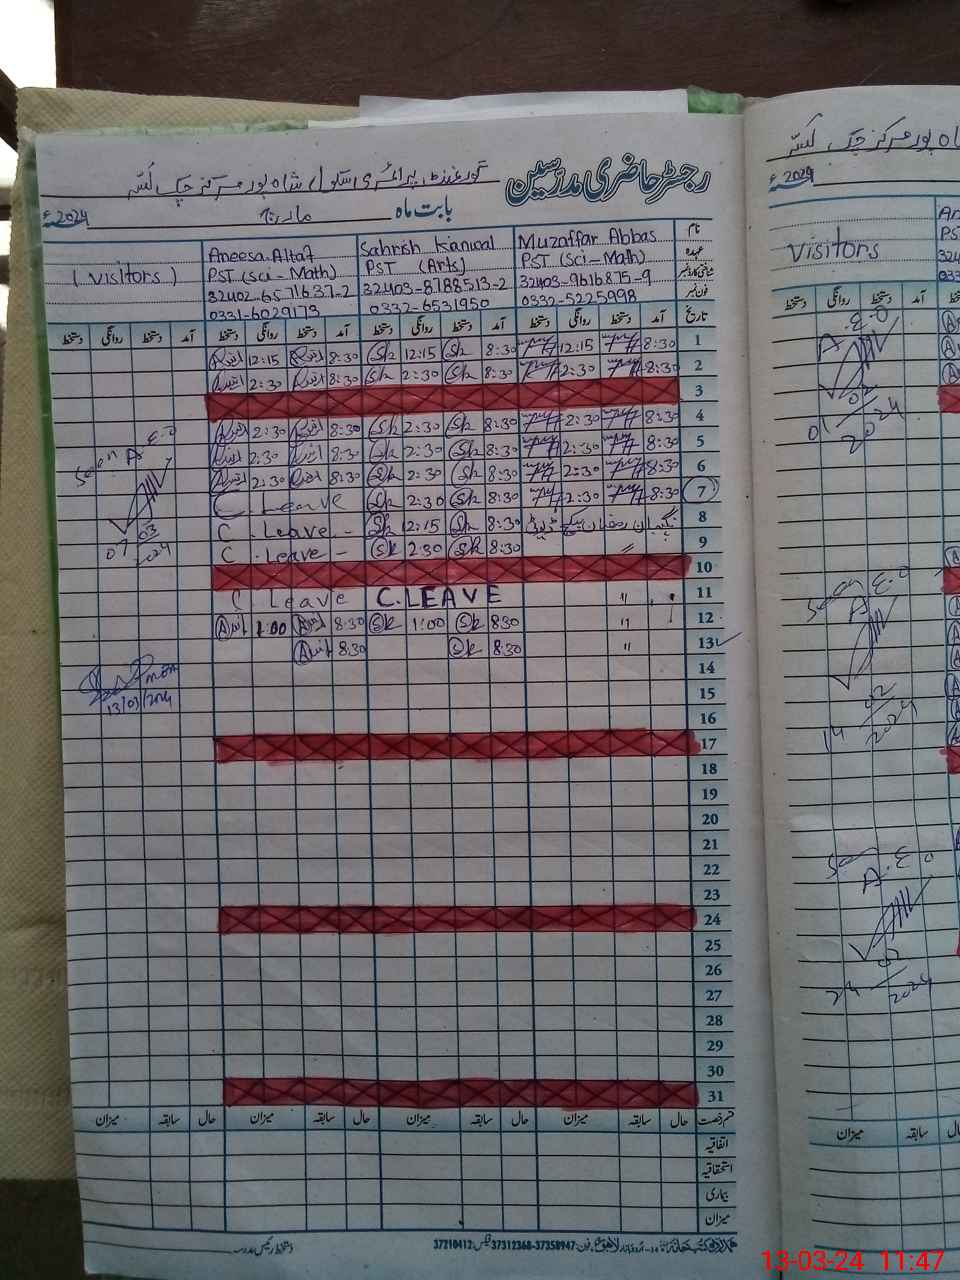 رجسٹر حاضری مدرسین گورنمنٹ پرائمری سکول شاہ پور مرکز چک
بابت ماہ مارچ 2024ء
نام Muzaffar Abbas Sahrish Kanwal Aneesa Altaf (Visitors)
عہدہ PST (Sci-Math) PST (Arts) PST (Sci-Math)
شناختی کارڈ نمبر 32403-9616875-9 32403-8788513-2 32402-6571637-2
فون نمبر 0332-5225998 0332-6531950 0331-6029173
تاریخ آمد دستخط روانگی دستخط آمد دستخط روانگی دستخط آمد دستخط روانگی دستخط آمد دستخط روانگی دستخط
1 8:30 12:15 8:30 Sk 12:15 Sk 8:30 12:15
2 8:30 2:30 8:30 Sk 2:30 Sk 8:30 2:30
3
4 8:30 2:30 8:30 Sk 2:30 Sk 8:30 2:30
5 8:30 2:30 8:30 Sk 2:30 Sk 8:30 2:30
6 8:30 2:30 8:30 Sk 2:30 Sk 8:30 2:30
7 8:30 2:30 8:30 Sk 2:30 Sk C. Leave
8 8:30 Sk 12:15 Sk C. Leave -
9 〃 8:30 Sk 2:30 Sk C. Leave -
10
11 〃 C. LEAVE C Leave
12 〃 8:30 Sk 1:00 Sk 8:30 1:00
13 〃 8:30 Sk 8:30
14
15
16
17
18
19
20
21
22
23
24
25
26
27
28
29
30
31
Seen A.E.O
07/03/2024
13/03/2024
قسم رخصت حال سابقہ میزان حال سابقہ میزان حال سابقہ میزان حال سابقہ میزان
اتفاقیہ
استحقاقیہ
بیماری
میزان
فون: 37312368-37358947 فیکس: 37210412
دستخط رئیس مدرسہ
2024ء
Visitors
آمد دستخط روانگی دستخط
A.E.O
02
2024
Seen A.E.O
14/02/2024
Seen A.E.O
24/02/2024
سابقہ میزان
13-03-24 11:47